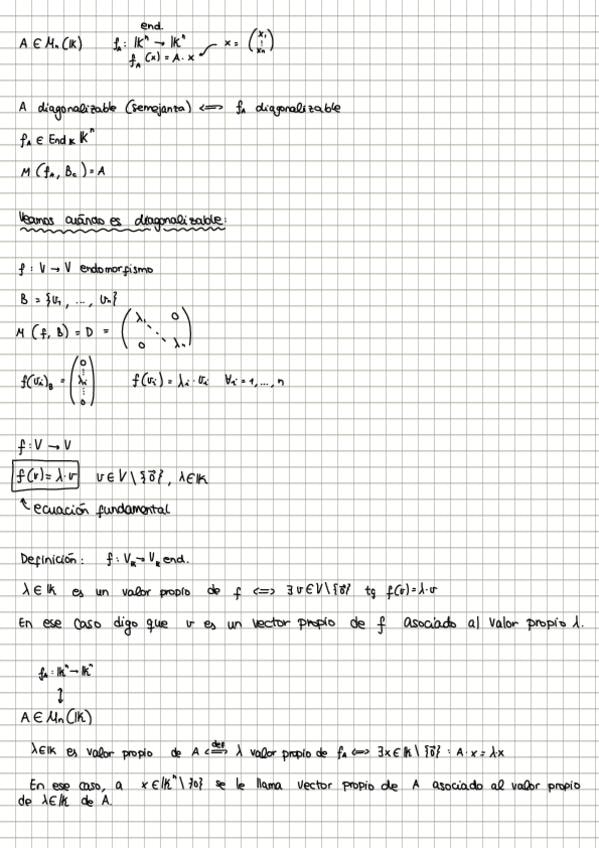 end.
A ∈ Mₙ(𝕂) f_A : 𝕂ⁿ → 𝕂ⁿ
f_A(x) = A · x x = (x₁ ⋮ xₙ)
A diagonalizable (semejanza) ⟺ f_A diagonalizable
f_A ∈ End_𝕂 𝕂ⁿ
M (f_A, B_c) = A
Veamos cuándo es diagonalizable:
f : V → V endomorfismo
B = {v₁, ..., vₙ}
M (f, B) = D = (λ₁ 0 ⋱ 0 λₙ)
f(vᵢ)_B = (0 ⋮ λᵢ ⋮ 0) f(vᵢ) = λᵢ · vᵢ ∀i = 1, ..., n
f : V → V
f(v) = λ · v v ∈ V \ {0⃗}, λ ∈ 𝕂
↖ ecuación fundamental
Definición: f : V_𝕂 → V_𝕂 end.
λ ∈ 𝕂 es un valor propio de f ⟺ ∃ v ∈ V \ {0⃗} tq f(v) = λ · v
En ese caso digo que v es un vector propio de f asociado al valor propio λ.
f_A : 𝕂ⁿ → 𝕂ⁿ
↕
A ∈ Mₙ(𝕂)
λ ∈ 𝕂 es valor propio de A ⟺def λ valor propio de f_A ⟺ ∃ x ∈ 𝕂 \ {0⃗} : A · x = λx
En ese caso, a x ∈ 𝕂ⁿ \ {0} se le llama vector propio de A asociado al valor propio
de λ ∈ 𝕂 de A.